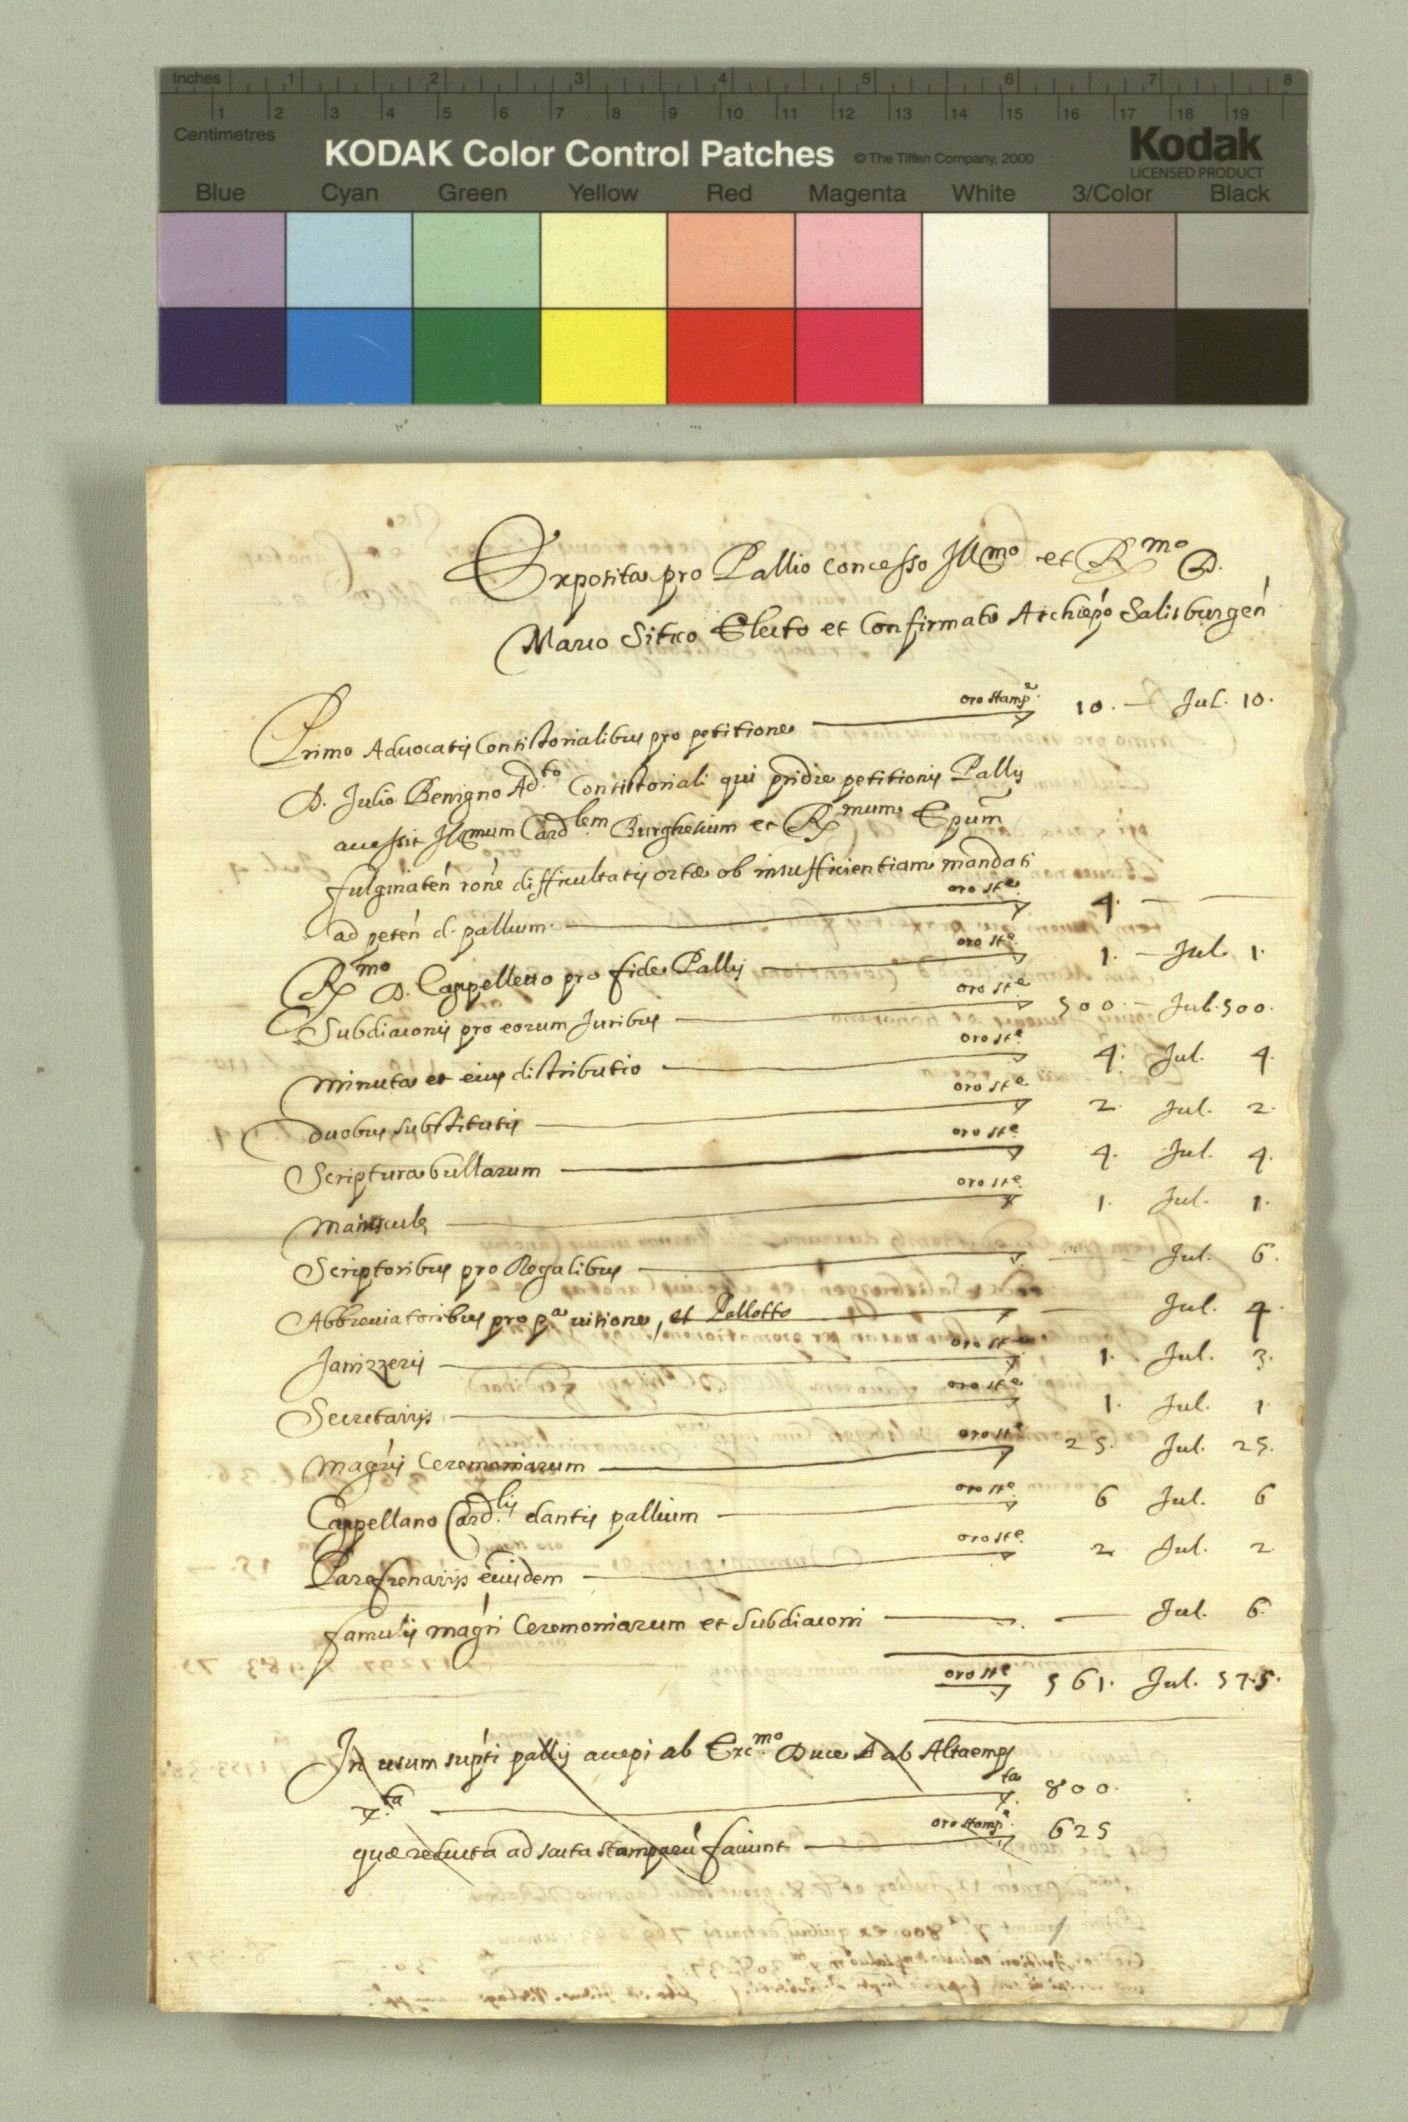 Inches 1 2 3 4 5 6 7 8
1 2 3 4 5 6 7 8 9 10 11 12 13 14 15 16 17 18 19
Centimetres
KODAK Color Control Patches © The Tiffen Company, 2000 Kodak
LICENSED PRODUCT
Blue Cyan Green Yellow Red Magenta White 3/Color Black
Exposita pro Pallio concesso Illmo et Rmo D.
Marco Sitico Electo et Confirmato Archiepo Salisburgen
Primo Advocatis Consistorialibus pro petitione oro stampe 10. — Jul. 10.
D. Julio Benigno Adto Consistoriali qui pridie petitionis Pallij
accessit Illmum Cardlem Burghesium et Rmum Epum
fulginaten rone difficultatis ortae ob insufficientiam mandati
ad peten d. pallium oro ste 4. —
Rmo D. Cappelletto pro fide Pallij oro ste 1. — Jul. 1.
Subdiaconis pro eorum Juribus oro ste 500. — Jul. 500.
Minuta et eius distributio oro ste 4. Jul. 4.
duobus substitutis oro ste 2. Jul. 2.
Scriptura bullarum oro ste 4. Jul. 4.
Maiuscula oro ste 1. Jul. 1.
Scriptoribus pro Regalibus — Jul. 6.
Abbreviatoribus pro pa visione, et Pallotto — Jul. 4.
Janizzeris oro ste 1. Jul. 3.
Secretarijs oro ste 1. Jul. 1
Magris Ceremoniarum oro ste 25. Jul. 25.
Cappellano Cardlis dantis pallium oro ste 6 Jul. 6
Parafrenarijs eiusdem oro ste 2 Jul. 2
famulis magri Ceremoniarum et Subdiaconi — Jul. 6.
oro ste 561. Jul. 575.
In usum supti pallij accepi ab Excmo Duce D ab Altaemps
ta 800.
quae reducta ad scuta stamparu faciunt oro stampe 625